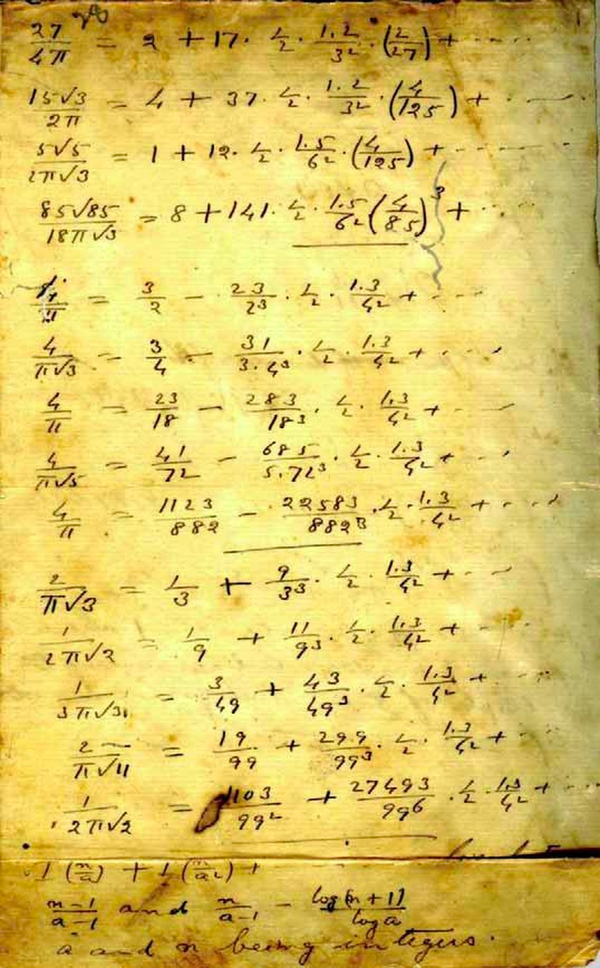 27/4π = 2 + 17 · 1/2 · 1.2/3² · (2/27) + ....
15√3/2π = 4 + 37 · 1/2 · 1.2/3² · (4/125) + ....
5√5/2π√3 = 1 + 12 · 1/2 · 1.5/6² · (4/125) + ....
85√85/18π√3 = 8 + 141 · 1/2 · 1.5/6² (4/85)³ + ...
4/π = 3/2 − 23/2³ · 1/2 · 1.3/4² + ...
4/π√3 = 3/4 − 31/3.4³ · 1/2 · 1.3/4² + ...
4/π = 23/18 − 283/18³ · 1/2 · 1.3/4² + ...
4/π√5 = 41/72 − 685/5.72³ · 1/2 · 1.3/4² + ...
4/π = 1123/882 − 22583/882³ · 1/2 · 1.3/4² + ...
2/π√3 = 1/3 + 9/3³ · 1/2 · 1.3/4² + ...
1/2π√2 = 1/9 + 11/9³ · 1/2 · 1.3/4² + ...
1/3π√3 = 3/49 + 43/49³ · 1/2 · 1.3/4² + ...
2/π√11 = 19/99 + 299/99³ · 1/2 · 1.3/4² + ...
1/2π√2 = 1103/99² + 27493/99⁶ · 1/2 · 1.3/4² + ...
1(n/a) + 1(n/a²) +
n−1/a−1 and n/a−1 − log(n+1)/log a
a and n being integers.